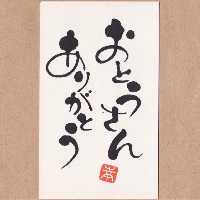 おとうさん
ありがとう